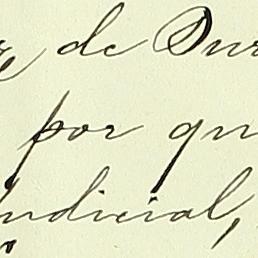 de Dur
por qu
udicial,